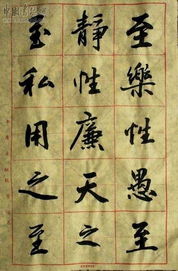 至樂性愚至
靜性廉天之
至私用之至